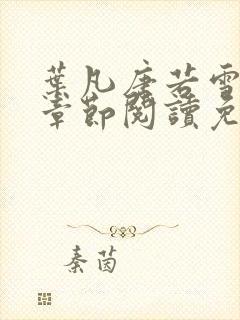 葉凡唐若雪
章節閱讀免
秦茵